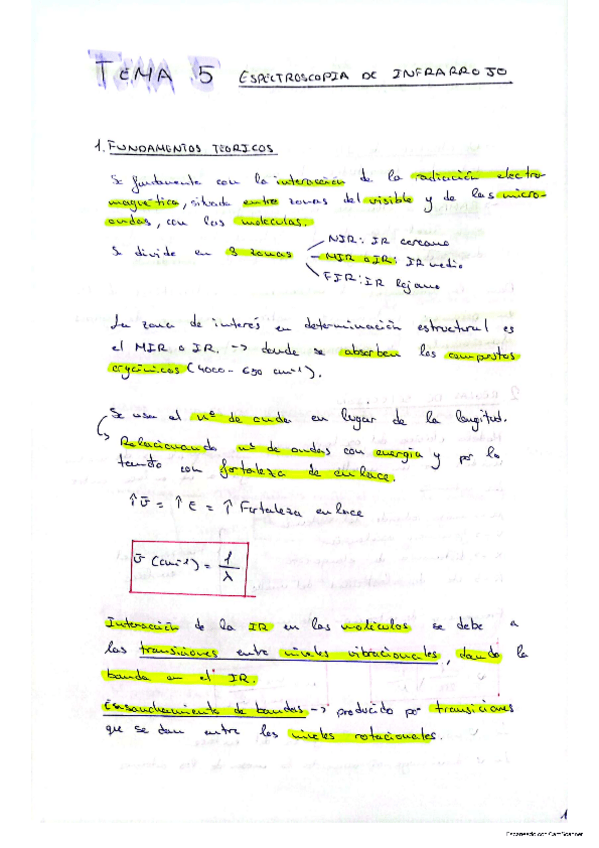 TEMA 5 ESPECTROSCOPIA DE INFRARROJO
1. FUNDAMENTOS TEORICOS
Se fundamenta con la interacción de la radiación electro-
magnética, situada entre zonas del visible y de las micro-
ondas, con las moleculas.
Se divide en 3 zonas
NIR: IR cercano
MIR o IR: IR medio
FIR: IR lejano
La zona de interés en determinación estructural es
el MIR o IR. -> donde se absorben los compuestos
orgánicos (4000 - 690 cm-1).
Se usa el nº de onda en lugar de la longitud.
Relacionando nº de ondas con energía y por lo
tanto con fortaleza de enlace.
↑ν̄ = ↑E = ↑ Fortaleza enlace
ν̄ (cm-1) = 1/λ
Interacción de la IR en las moléculas se debe a
las transiciones entre niveles vibracionales, dando la
banda en el IR.
Ensanchamiento de bandas -> producido por transiciones
que se dan entre los niveles rotacionales.
1
Escaneado con CamScanner